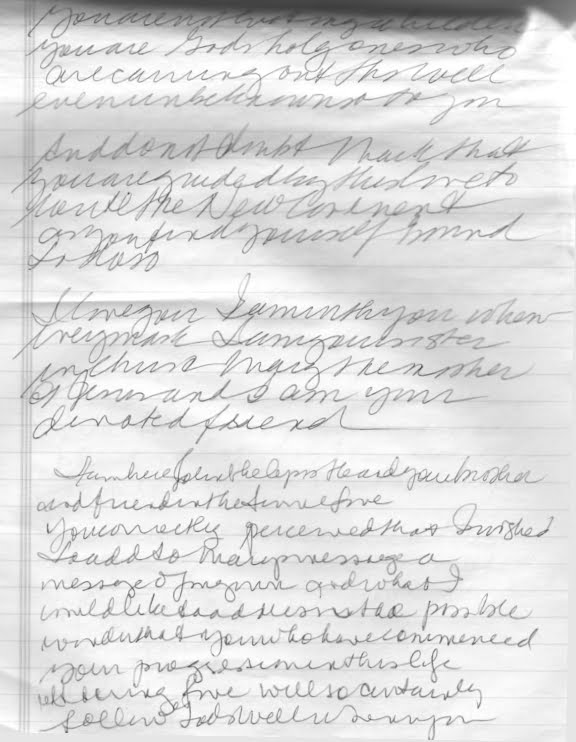 You are not
you are Gods holy ones who
are carrying out this Will
even unbeknownst to you
And do not doubt that
you are guided by this love to
the New
as you find yourself bound
to do so
I love you I am with you when
I am your sister
in Christ Mary the mother
of Jesus and I am your
devoted friend
I am here John the Apostle and your brother
and friend in the
You correctly perceived that I wished
to add to Marys message a
message of my own and what I
would like to address is the possible
wonder that you who have commenced
your progression in this life
love will so certainly
follow Gods Will